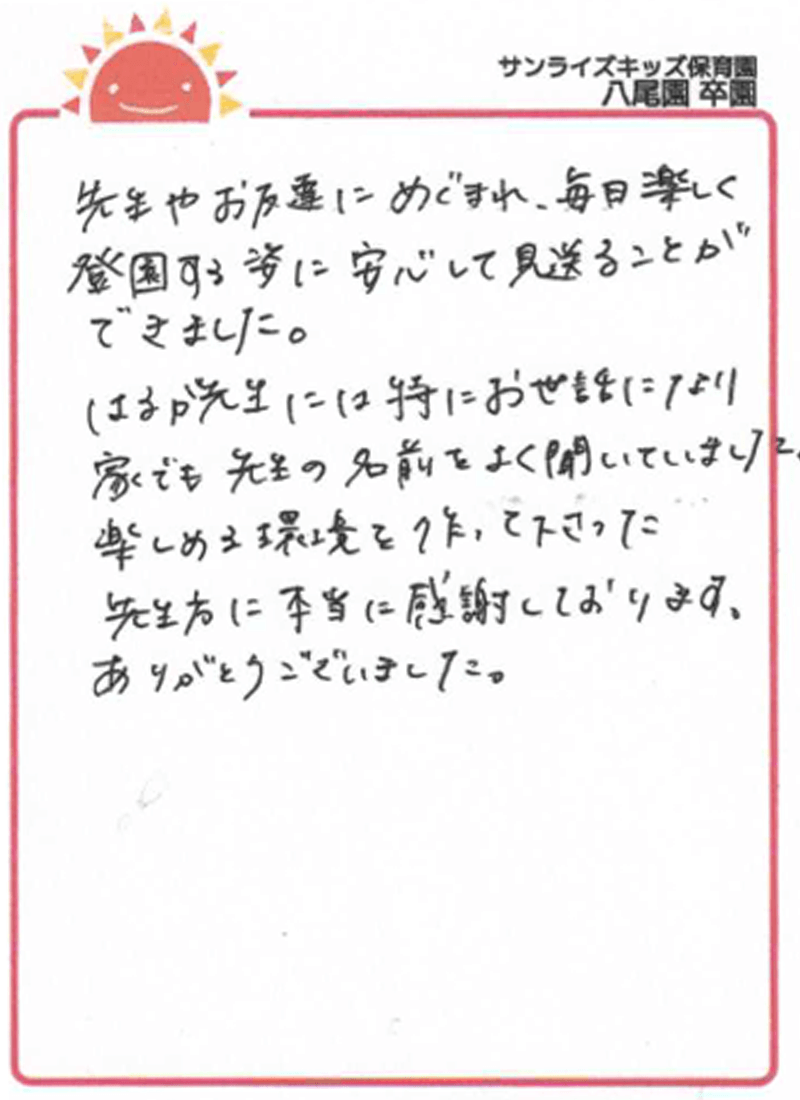 サンライズキッズ保育園
八尾園 卒園
先生やお友達にめぐまれ、毎日楽しく
登園する姿に安心して見送ることが
できました。
はるか先生には特にお世話になり
家でも先生の名前をよく聞いていました。
楽しめる環境を作って下さった
先生方に本当に感謝しております。
ありがとうございました。